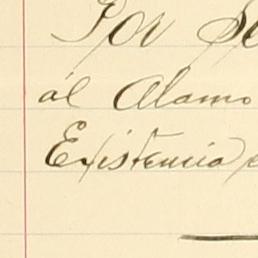 Por
al Alamo
Existencia